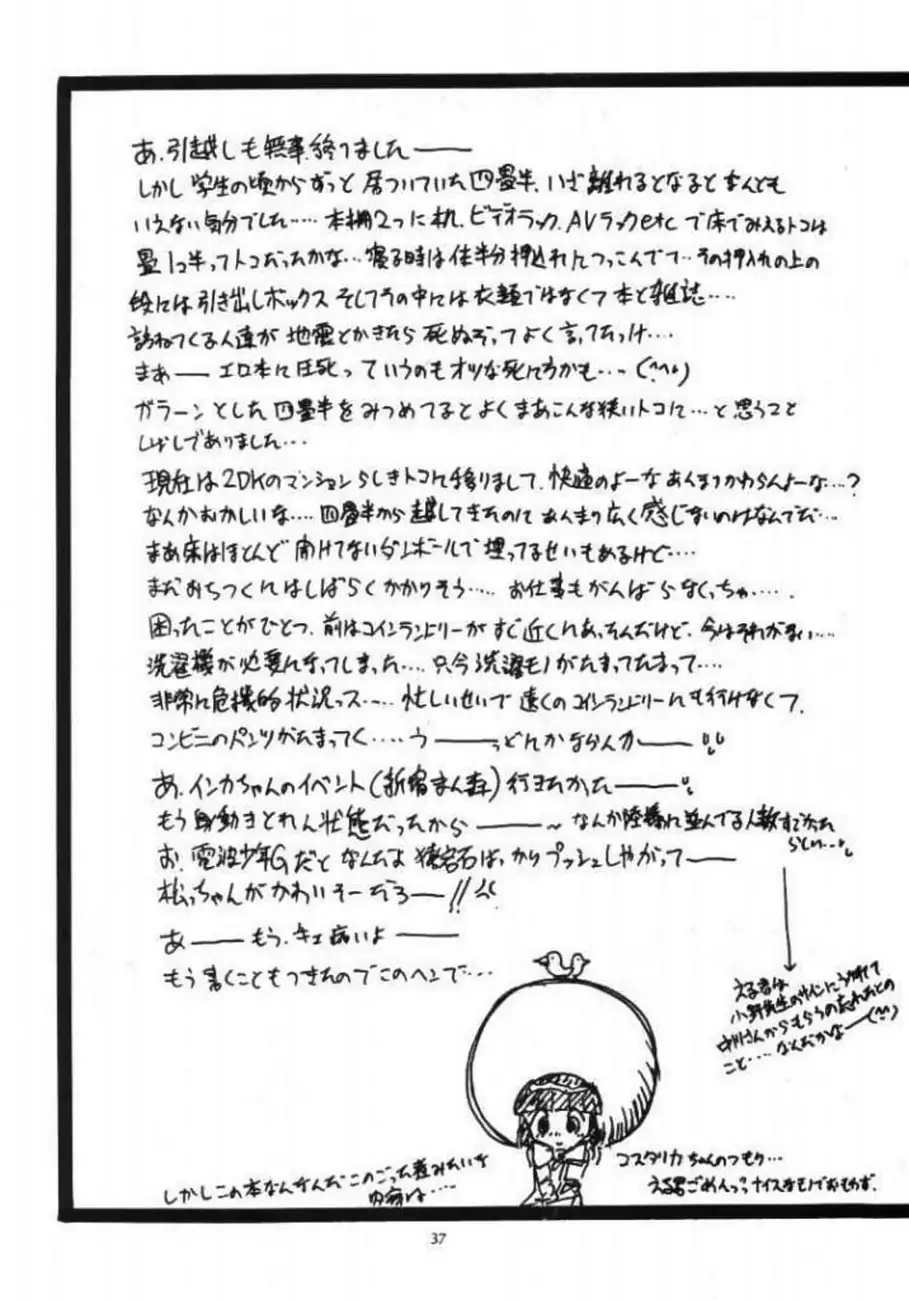 あ、引越しも無事、終りました――
しかし学生の頃からずっと居ついていた四畳半、いざ離れるとなるとなんとも
いえない気分でした‥‥ 本棚2つに机、ビデオラック、AVラックetc で床でみえるトコは
畳1つ半ってトコだったかな… 寝る時は体半分押込れにつっこんでて‥その押入れの上の
段には引き出しボックス そしてその中には衣類ではなくて本と雑誌‥‥
訪ねてくる人達が 地震とかきたら 死ぬぞってよく言ってたっけ‥‥
まぁ―― エロ本に圧死っていうのもオツな死に方かも‥‥(^^;)
ガラーンとした四畳半をみつめてるとよくまあこんな狭いトコに‥‥と思うこと
しばしでありました‥‥
現在は2DKのマンションらしきトコに移りまして、快適のよーな あんまりかわらんよーな‥‥?
なんかおかしいな‥‥四畳半から越してきたのに あんまり広く感じないのはなんでだ‥‥
まあ床はほとんど 開けてないダンボールで埋ってるせいもあるけど‥‥
まだおちつくにはしばらくかかりそう‥‥ お仕事もがんばらなくっちゃ‥‥.
困ったことがひとつ、前はコインランドリーがすぐ近くにあったんだけど、今はそれがない‥‥
洗濯機が必要になってしまった‥‥ 只今洗濯モノがたまってたまって‥‥
非常に危機的状況っス‥‥ 忙しいせいで 遠くのコインランドリーにも行けなくて、
コンビニのパンツがたまってく‥‥ う――っどんかならんか――
あ、インカちゃんのイベント(新宿まん森)行きたかった――
もう身動きとれん状態だったから――~ なんか陸橋に並んでる人数すごかった
らしい‥‥
お、電波少年Gだと なんだよ 猿岩石ばっかりプッシュしやがって――
松っちゃんがかわいそーだろ――!!
あ―― もう、 病いよ――
もう書くこともつきたのでこのヘンで‥‥
える君は
小野先生のサインにうかれて
さんからもらうの忘れたとの
こと‥‥ なんだかなー(^^;)
しかしこの本なんなんだ このごった煮みたいな
内容は‥‥
コスタリカちゃんのつもり‥‥
える君ごめんっっ ナイスなモノでおもわず、
37